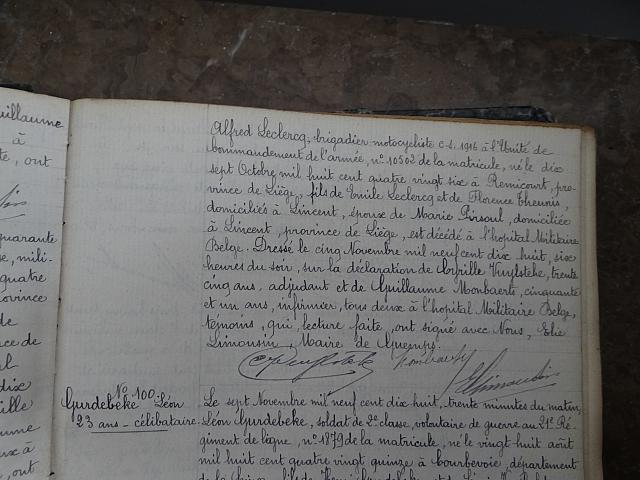 uillaume
à
te, ont
quarante
se, mili-
quatre
rovince
de
ce de
al
dix
ille
ume
ux à
, ont
Alfred Leclercq, brigadier motocycliste c.s. 1916 à l'Unité de
Commandement de l'armée, n° 10502 de la matricule, né le dix
sept Octobre mil huit cent quatre vingt six à Remicourt, pro-
vince de Liège, fils de Emile Leclercq et de Florence Theunis,
domiciliés à Lincent, époux de Marie Pirsoul, domiciliée
à Lincent, province de Liège, est décédé à l'hopital Militaire
Belge. Dressé le cinq Novembre mil neuf cent dix huit, six
heures du soir, sur la déclaration de Cyrille Vuylsteke, trente
cinq ans, adjudant et de Guillaume Monbaerts, cinquante
et un ans, infirmier, tous deux à l'hopital Militaire Belge,
témoins, qui, lecture faite, ont signé avec Nous, Elie
Limousin, Maire de Guemps.
N° 100
Gurdebeke Léon
23 ans - célibataire
Le sept Novembre mil neuf cent dix huit, trente minutes du matin,
Léon Gurdebeke, soldat de 2e classe, volontaire de guerre au 21e Ré-
giment de ligne, n° 1879 de la matricule, né le vingt huit août
mil huit cent quatre vingt quinze à Courbevoie, département
de la Seine, fils de